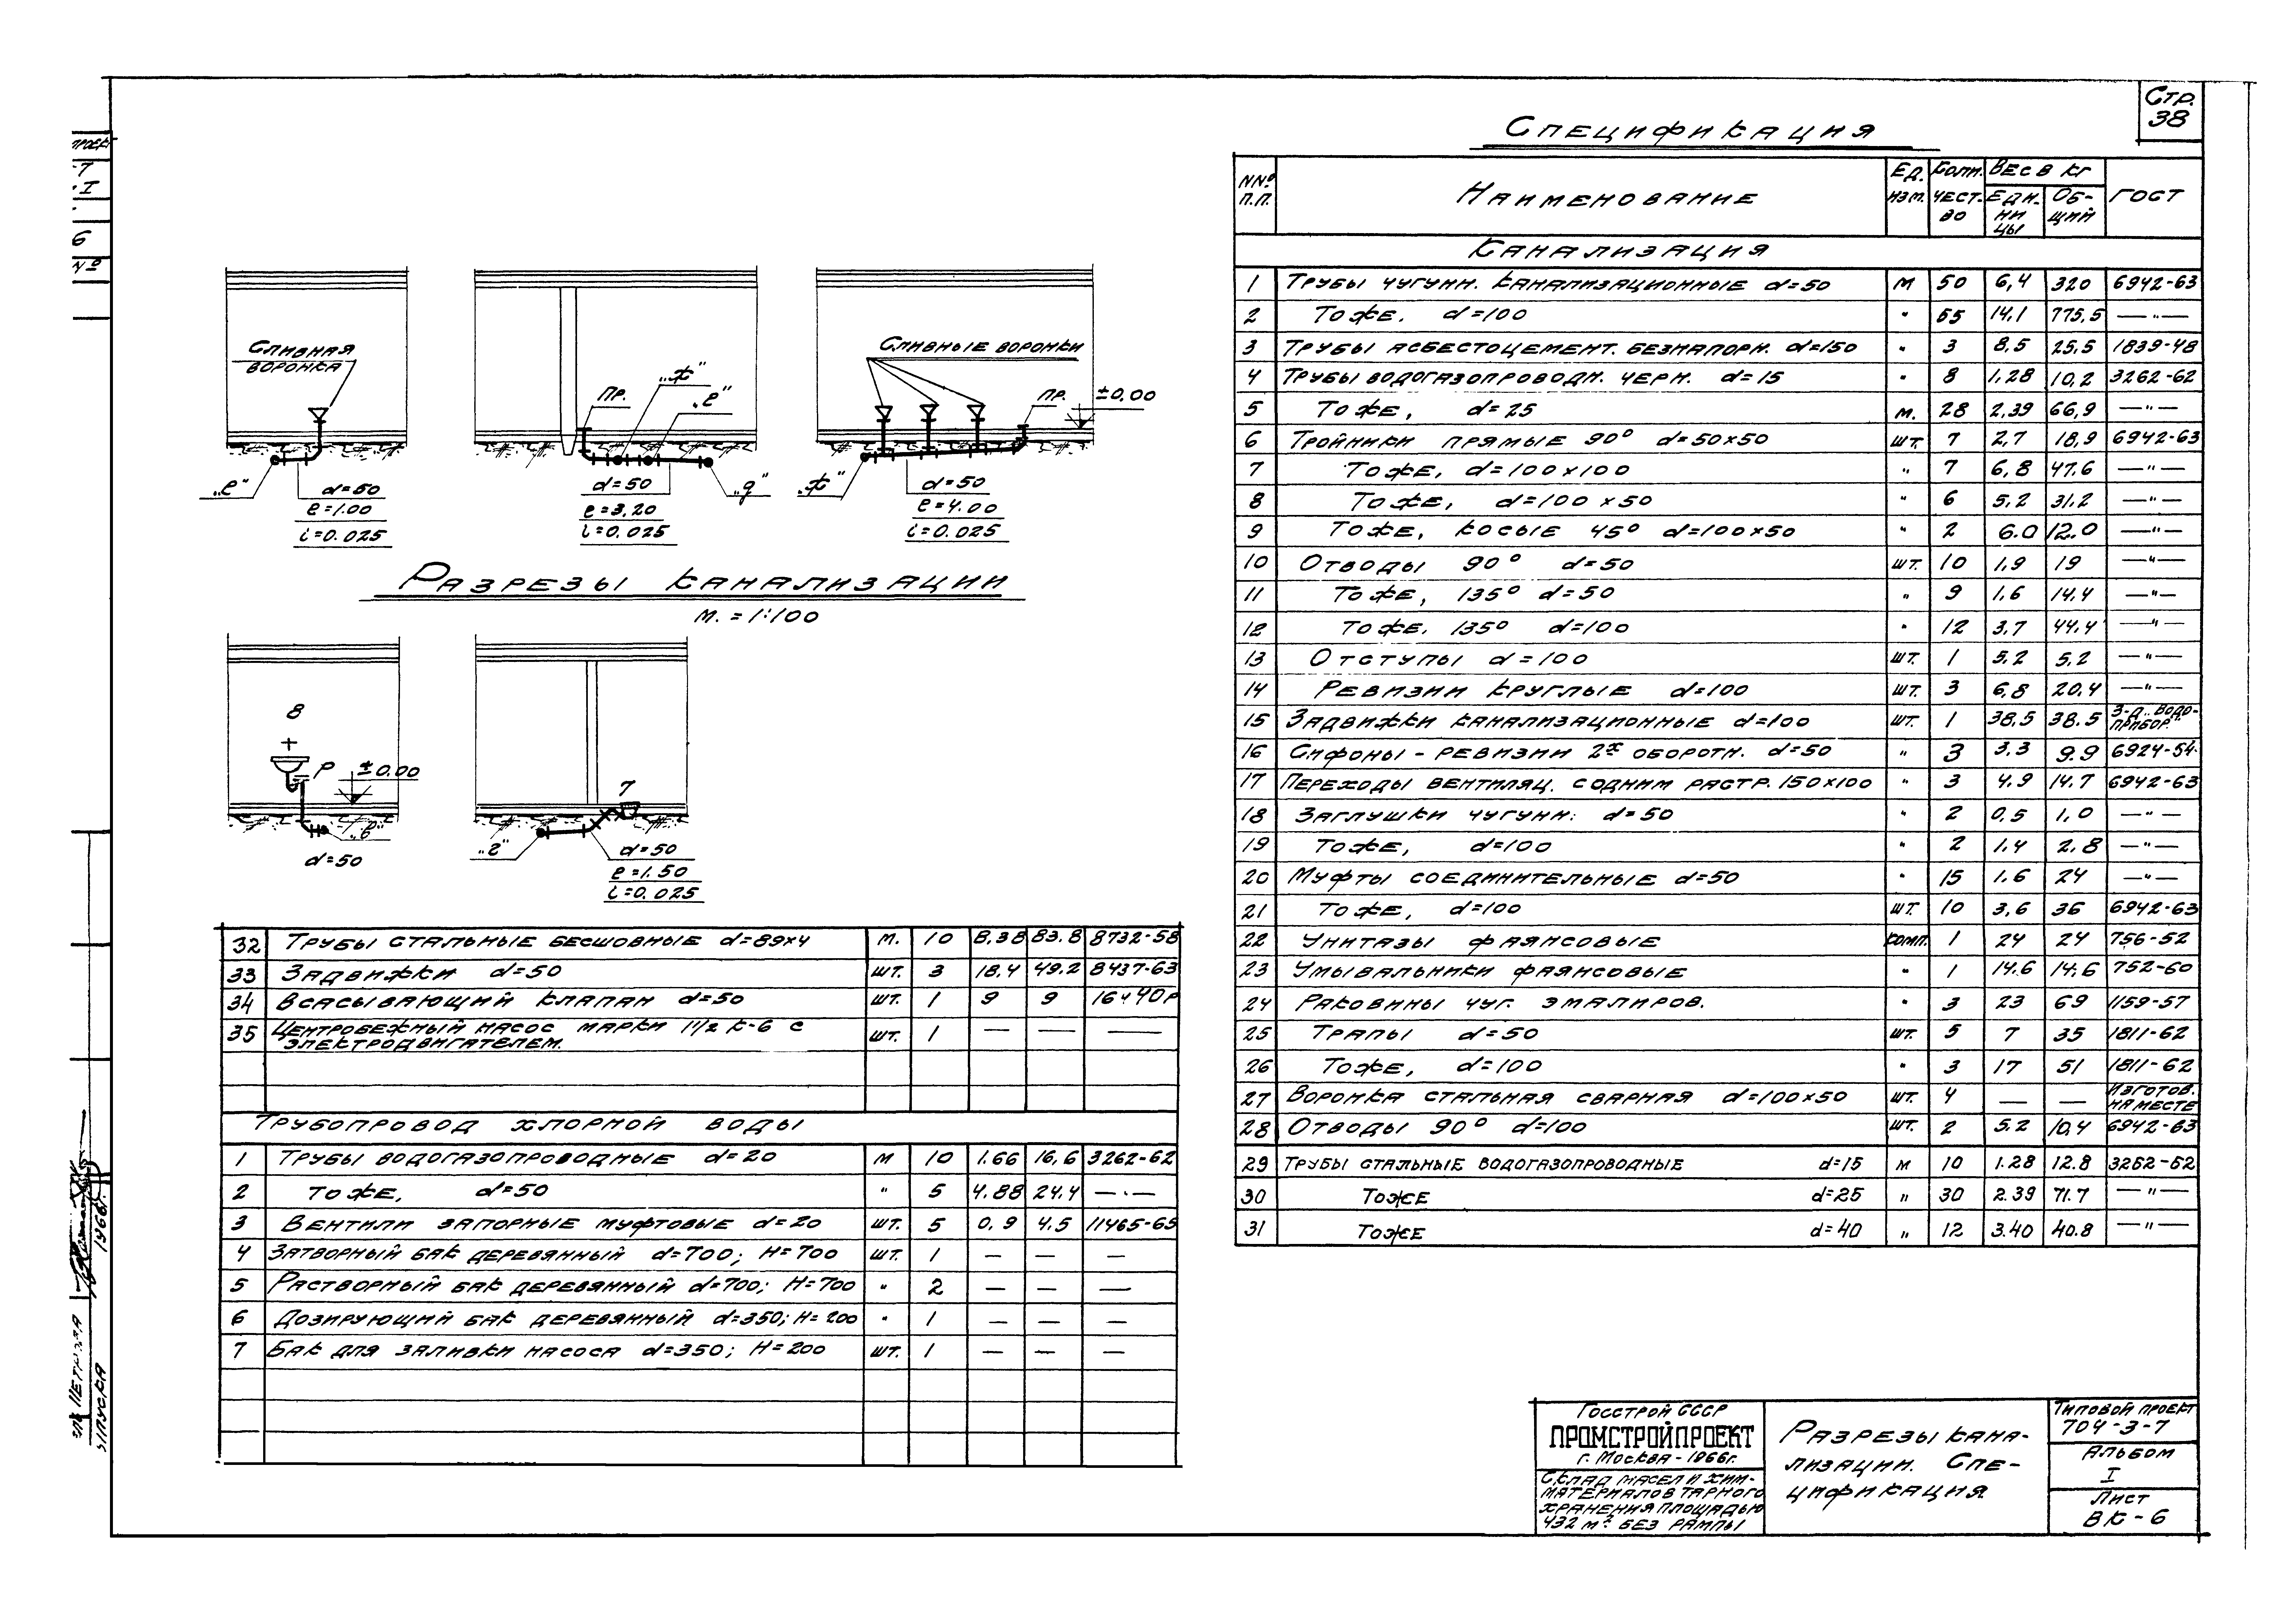 Стр.
38
Спецификация
NN° п.п. Наименование Ед. изм. Колич. чест-во Вес в кг Еди-ницы Об-щий ГОСТ
Канализация
1 Трубы чугунн. канализационные d=50 м 50 6,4 320 6942-63
2 Тоже. d=100 " 55 14.1 775,5 —"—
3 Трубы асбестоцемент. безнапорн. d=150 " 3 8,5 25,5 1839-48
4 Трубы водогазопроводн. черн. d=15 " 8 1,28 10,2 3262-62
5 Тоже, d=25 м. 28 2,39 66,9 —"—
6 Тройники прямые 90° d=50х50 шт. 7 2,7 18,9 6942-63
7 Тоже, d=100х100 " 7 6,8 47.6 —"—
8 Тоже, d=100х50 " 6 5,2 31,2 —"—
9 Тоже, косые 45° d=100х50 " 2 6.0 12.0 —"—
10 Отводы 90° d=50 шт. 10 1,9 19 —"—
11 Тоже, 135° d=50 " 9 1,6 14,4 —"—
12 Тоже. 135° d=100 " 12 3,7 44.4 —"—
13 Отступы d=100 шт. 1 5,2 5,2 —"—
14 Ревизии круглые d=100 шт. 3 6,8 20,4 —"—
15 Задвижки канализационные d=100 шт. 1 38,5 38.5 З-д „Водо-прибор"
16 Сифоны - ревизии 2х оборотн. d=50 " 3 3,3 9.9 6924-54
17 Переходы вентиляц. с одним растр. 150х100 " 3 4.9 14.7 6942-63
18 Заглушки чугунн. d=50 " 2 0,5 1,0 —"—
19 Тоже, d=100 " 2 1,4 2,8 —"—
20 Муфты соединительные d=50 " 15 1.6 24 —"—
21 Тоже, d=100 шт. 10 3,6 36 6942-63
22 Унитазы фаянсовые комп. 1 24 24 756-52
23 Умывальники фаянсовые " 1 14.6 14.6 752-60
24 Раковины чуг. эмалиров. " 3 23 69 1159-57
25 Трапы d=50 шт. 5 7 35 1811-62
26 Тоже, d=100 " 3 17 51 1811-62
27 Воронка стальная сварная d=100х50 шт. 4 — — Изготов. на месте
28 Отводы 90° d=100 шт. 2 5.2 10,4 6942-63
29 Трубы стальные водогазопроводные d=15 м 10 1.28 12.8 3262-62
30 Тоже d=25 " 30 2.39 71.7 —"—
31 Тоже d=40 " 12 3.40 40.8 —"—
Сливная
воронка
„е"
d=50
e=1.00
i=0.025
пр.
„ж"
„е"
„д"
d=50
e=3,20
i=0.025
Сливные воронки
пр.
±0,00
„ж"
d=50
e=4.00
i=0.025
Разрезы канализации
м. = 1:100
8
Р
±0.00
„в"
d=50
7
„г"
d=50
e=1.50
i=0.025
32 Трубы стальные бесшовные d=89х4 м. 10 8,38 83.8 8732-58
33 Задвижки d=50 шт. 3 18.4 49.2 8437-63
34 Всасывающий клапан d=50 шт. 1 9 9 16ч40р
35 Центробежный насос марки 1½ К-6 с шт. 1 — — —
электродвигателем.
Трубопровод хлорной воды
1 Трубы водогазопроводные d=20 м 10 1.66 16,6 3262-62
2 Тоже, d=50 " 5 4.88 24.4 —"—
3 Вентили запорные муфтовые d=20 шт. 5 0,9 4.5 11465-65
4 Затворный бак деревянный d=700; H=700 шт. 1 — — —
5 Растворный бак деревянный d=700; H=700 " 2 — — —
6 Дозирующий бак деревянный d=350; H=200 " 1 — — —
7 Бак для заливки насоса d=350; H=200 шт. 1 — — —
Госстрой СССР
ПРОМСТРОЙПРОЕКТ
г. Москва - 1966г.
Склад масел и хим-
материалов тарного
хранения площадью
432 м² без рампы
Разрезы кана-
лизации. Спе-
цификация
Типовой проект
704-3-7
Альбом
I
Лист
ВК-6
проект
7
I
6
N°
1966г.